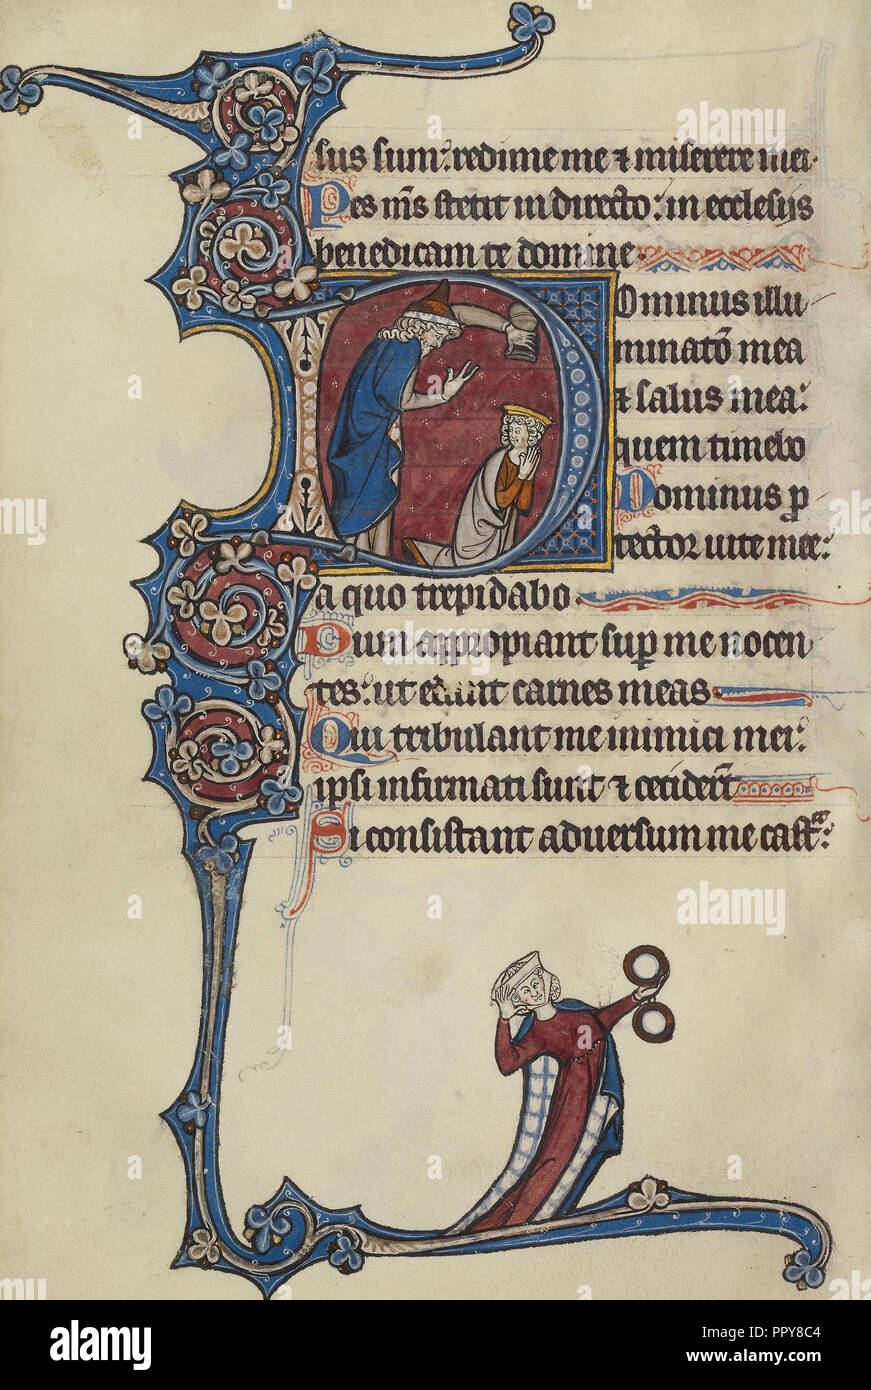 sus sum: redime me ⁊ miserere mei.
Pes ms̄ stetit in directo: in ecclesiis
benedicam te domine.
Dominus illu
minatō mea
⁊ salus mea:
quem timebo
Dominus ꝓ
tector uite mee:
a quo trepidabo.
Dum appropiant sup me nocen
tes: ut edant carnes meas.
Qui tribulant me inimici mei:
ipsi infirmati sunt ⁊ cecider̄t
Si consistant aduersum me castra:
alamy
alamy stock photo
Image ID: PPY8C4
www.alamy.com